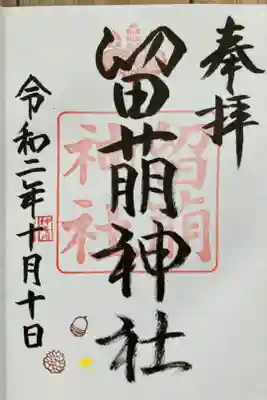 奉拝
留萌神社
令和二年十月十日
留萌
神社